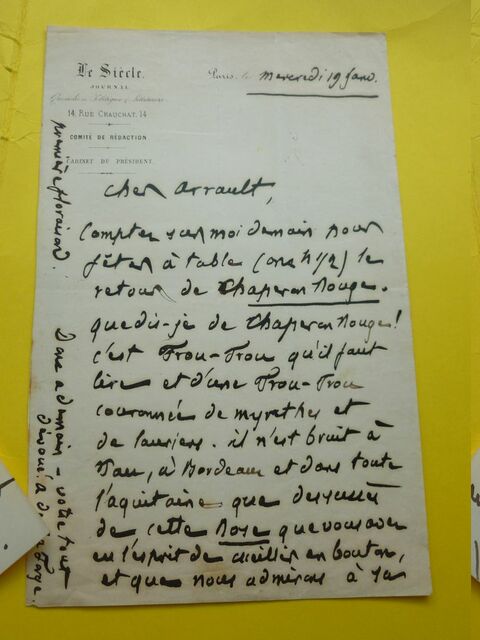 Le Siècle.
JOURNAL
Quotidien, Politique & Littéraire
14, RUE CHAUCHAT, 14
COMITÉ DE RÉDACTION
CABINET DU PRÉSIDENT.
Paris, le mercredi 19 Janv.
Cher Arrault,
Comptez sur moi demain pour
fêter à table (onze h 1/2) le
retour de Chaperon Rouge.
que dis-je de Chaperon Rouge!
c'est Frou-Frou qu'il faut
lire et d'une Frou-Frou
couronnée de myrthes et
de lauriers. il n'est bruit à
Pau, à Bordeaux et dans toute
l'aquitaine que du succès
de cette Rose que vous avez
eu l'esprit de cueillir en bouton,
et que nous admirons à sa
première floraison.
Donc à demain - votre tout
dévoué